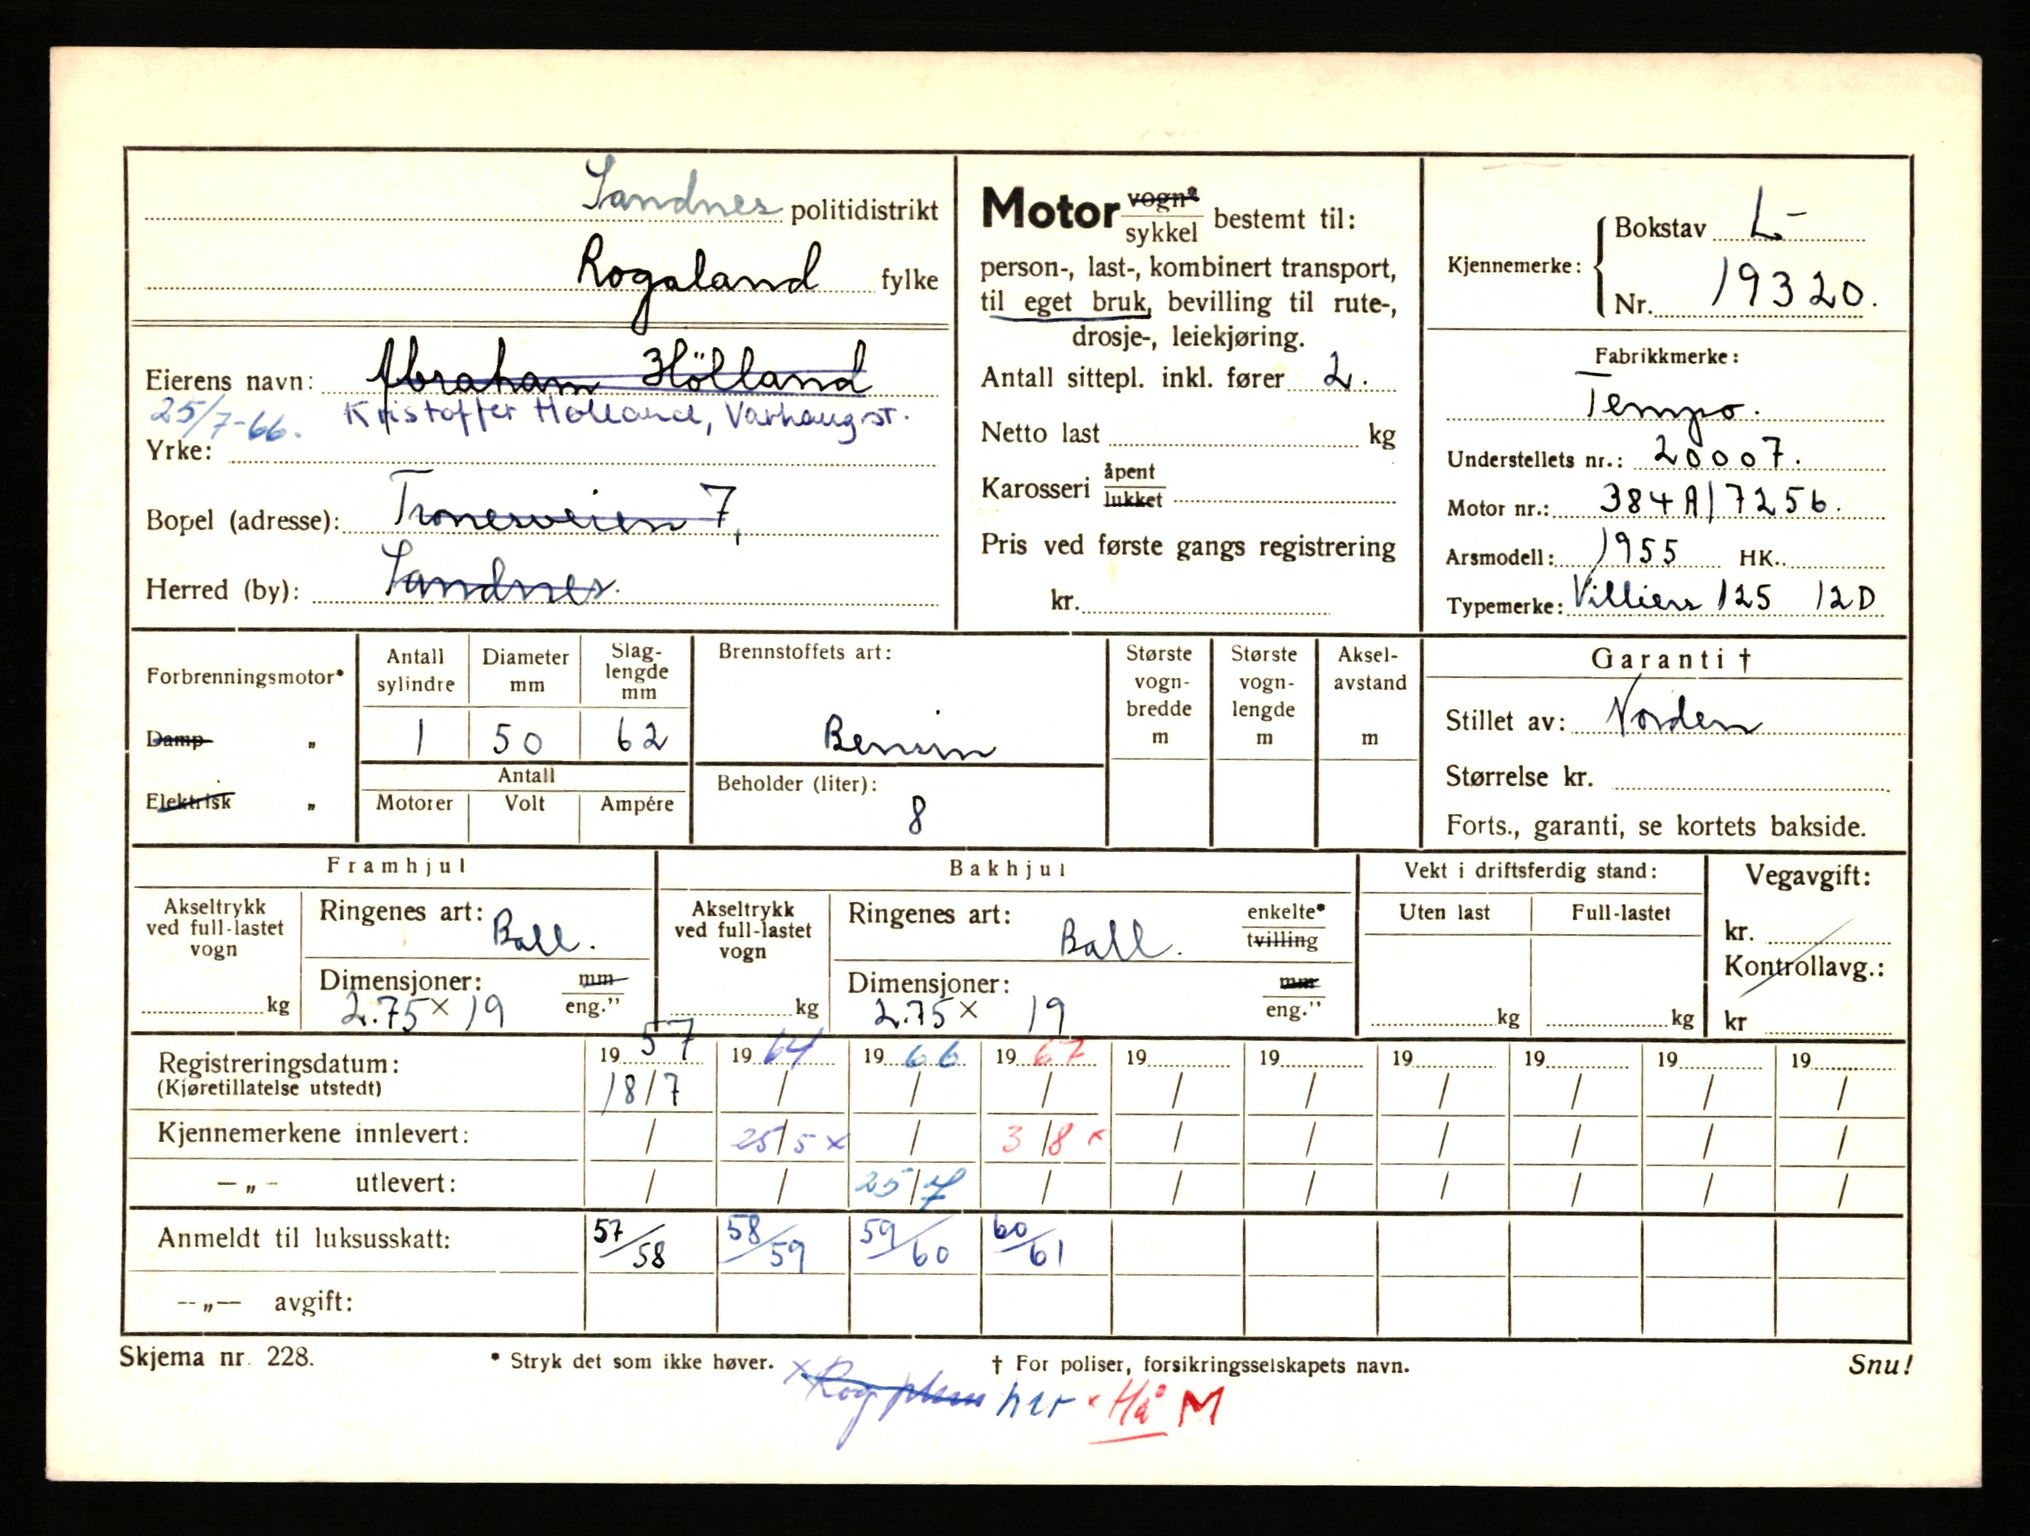 Sandnes politidistrikt
Rogaland fylke
Eierens navn: Abraham Hölland
25/7-66. Kristoffer Holland, Varhaug st.
Yrke:
Bopel (adresse): Tronesveien 7,
Herred (by): Sandnes.
Motor vogn* sykkel bestemt til:
person-, last-, kombinert transport,
til eget bruk, bevilling til rute-,
drosje-, leiekjøring.
Antall sittepl. inkl. fører 2.
Netto last kg
Karosseri åpent lukket
Pris ved første gangs registrering
kr.
Kjennemerke: Bokstav L-
Nr. 19320.
Fabrikkmerke:
Tempo.
Understellets nr.: 20007.
Motor nr.: 384A/7256.
Arsmodell: 1955 HK.
Typemerke: Villiers 125 12D
Forbrenningsmotor*
Damp „
Elektrisk „
Antall sylindre Diameter mm Slag-lengde mm
1 50 62
Antall
Motorer Volt Ampére
Brennstoffets art:
Bensin
Beholder (liter):
8
Største vogn-bredde m
Største vogn-lengde m
Aksel-avstand m
Garanti †
Stillet av: Norden
Størrelse kr.
Forts., garanti, se kortets bakside.
Framhjul
Akseltrykk ved full-lastet vogn
kg
Ringenes art: Ball.
Dimensjoner: mm eng."
2.75 x 19
Bakhjul
Akseltrykk ved full-lastet vogn
kg
Ringenes art: Ball. enkelte* tvilling
Dimensjoner: mm eng."
2.75 x 19
Vekt i driftsferdig stand:
Uten last Full-lastet
kg kg
Vegavgift:
kr.
Kontrollavg.:
kr
Registreringsdatum: 19 57 19 64 19 66 19 67 19 19 19 19 19 19
(Kjøretillatelse utstedt) 18/7 / / / / / / / / /
Kjennemerkene innlevert: / 25/5 x / 3/8 x / / / / / /
—„— utlevert: / / 25/7 / / / / / / /
Anmeldt til luksusskatt: 57/58 58/59 59/60 60/61
—„— avgift:
Skjema nr. 228. * Stryk det som ikke høver. † For poliser, forsikringsselskapets navn. Snu!
x Rog her x Hå M